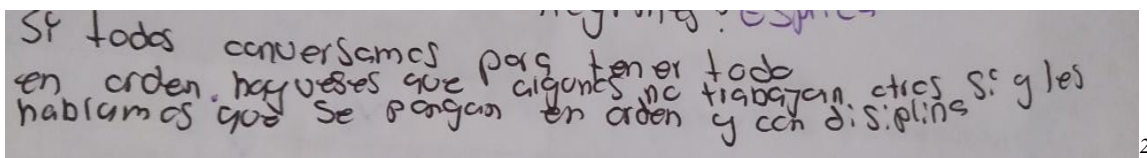 Si todos conversamos para tener todo
en orden. hay veses que algunos no trabajan otros si y les
hablamos que se pongan en orden y con disiplina
2